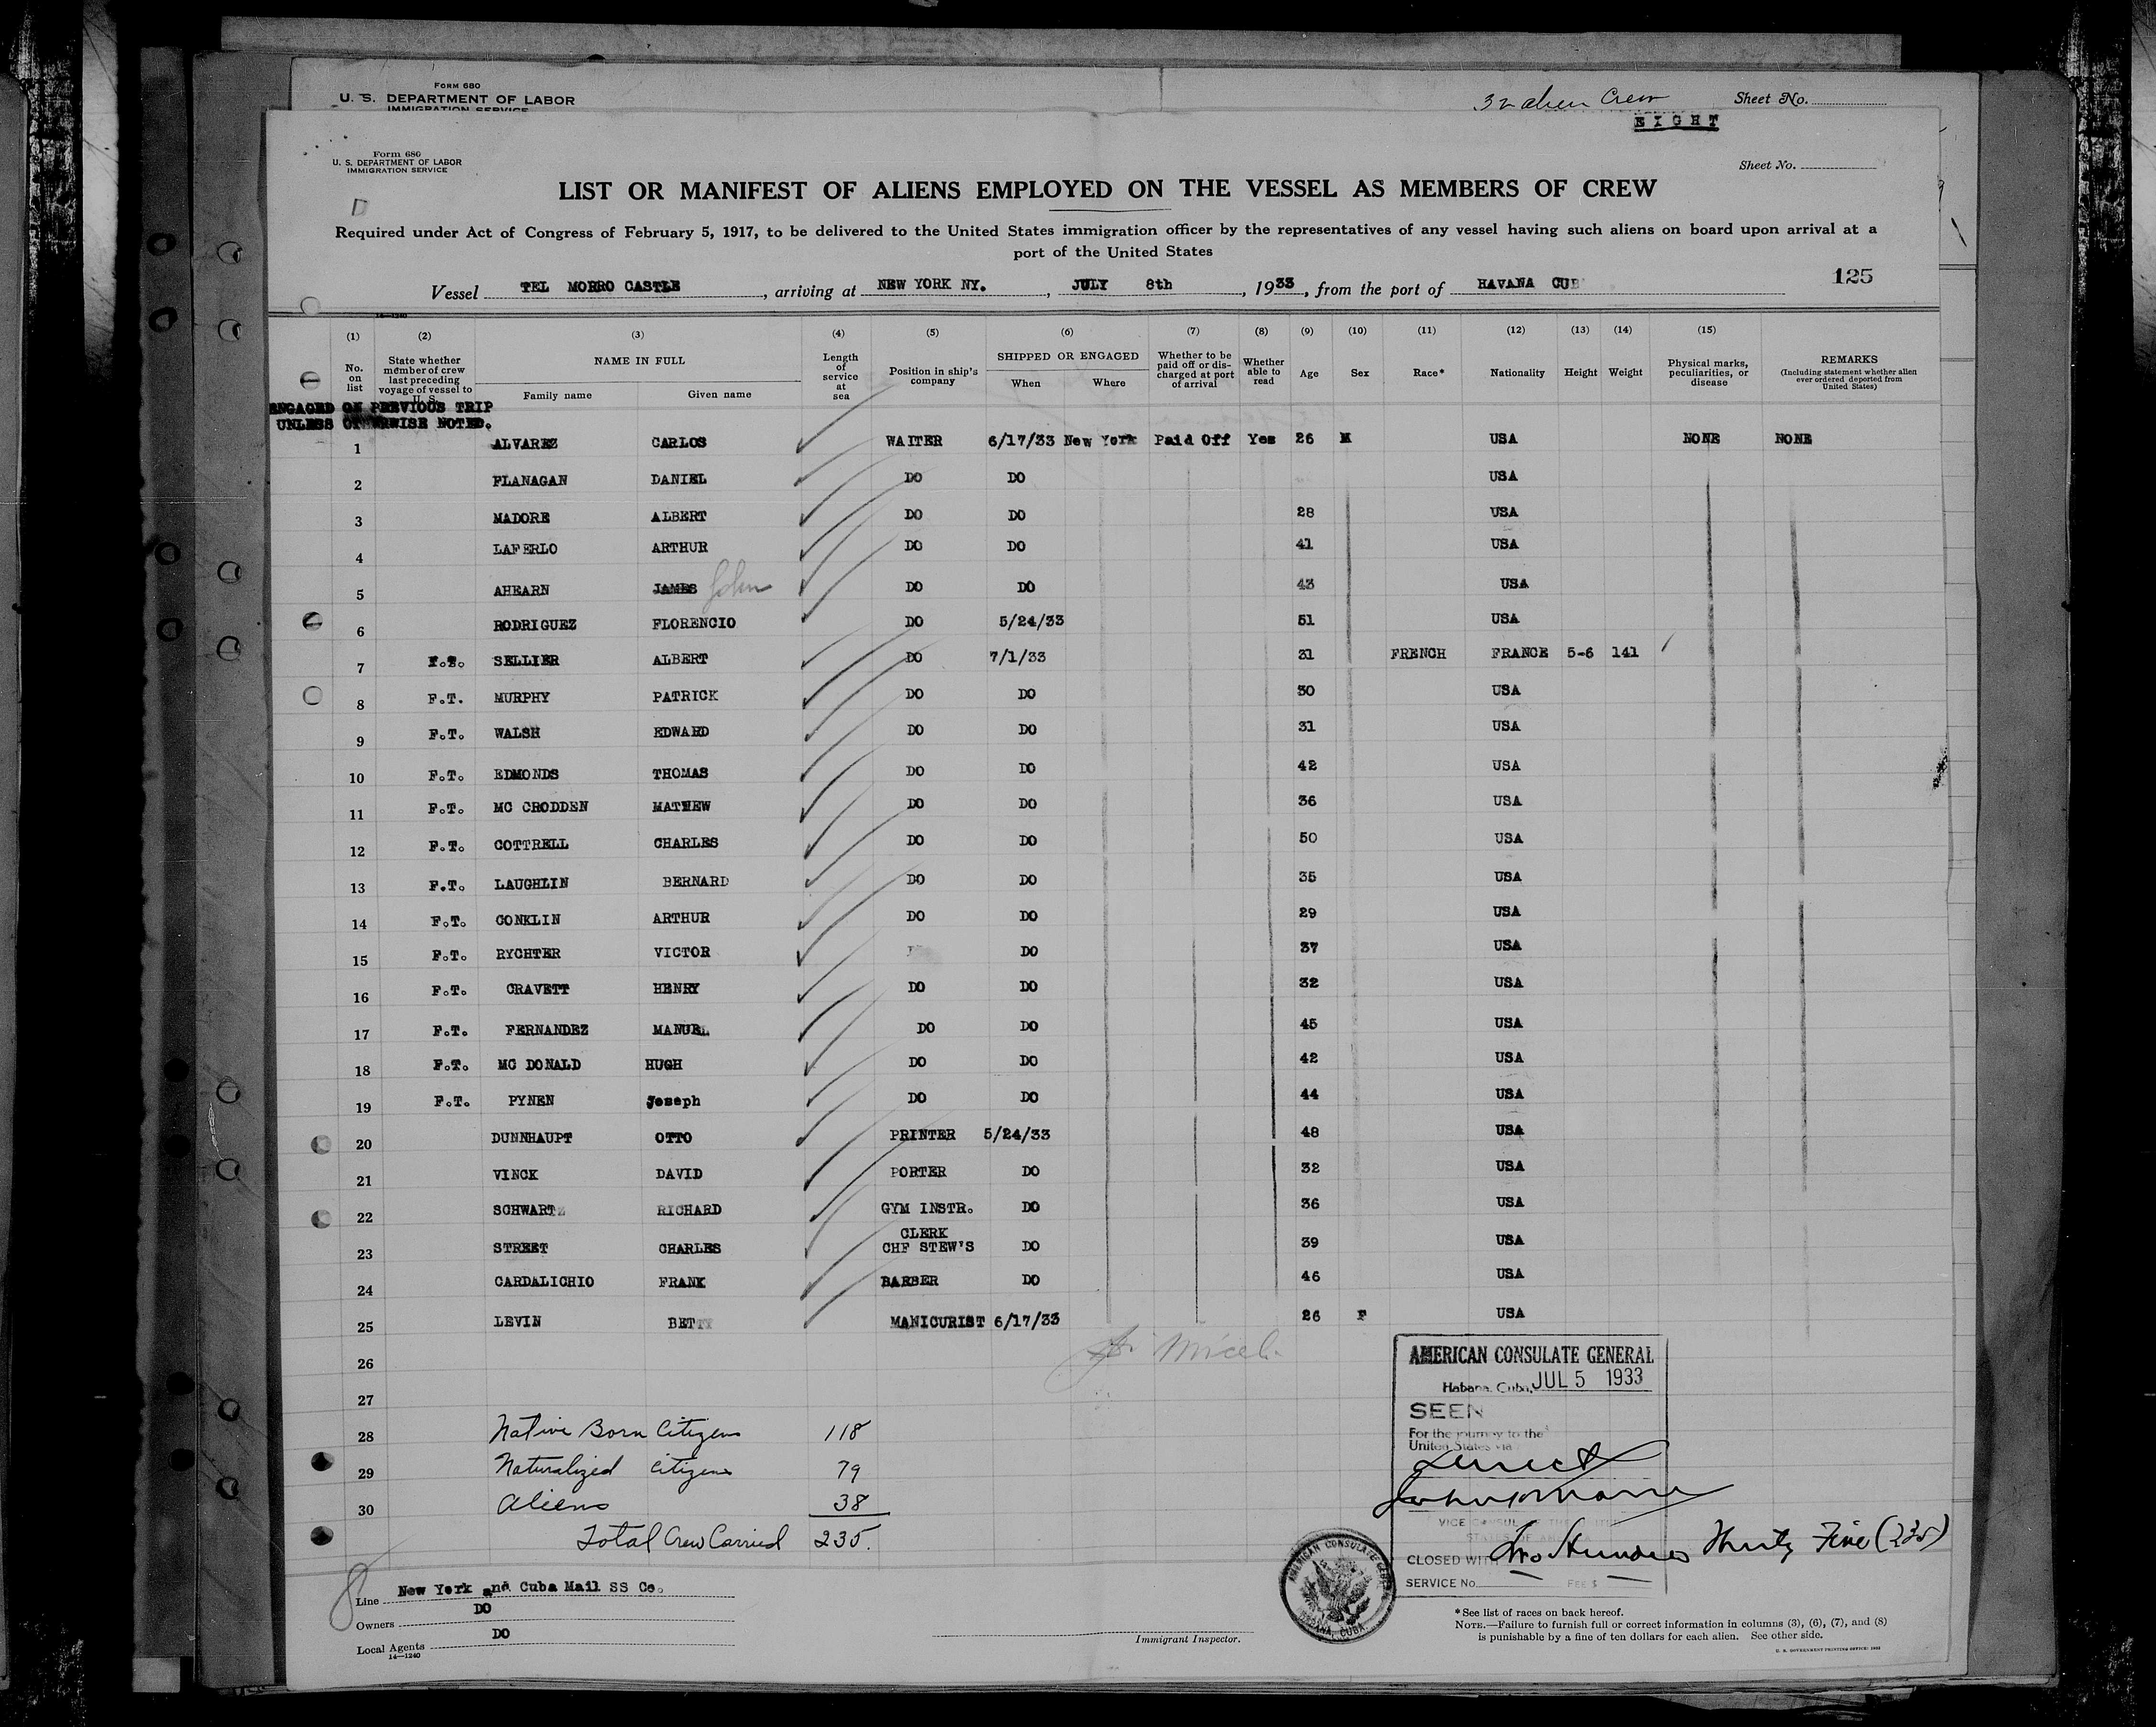 Form 680
U. S. DEPARTMENT OF LABOR
IMMIGRATION SERVICE
32 alien Crew
Sheet No.
EIGHT
Form 680
U. S. DEPARTMENT OF LABOR
IMMIGRATION SERVICE
Sheet No.
LIST OR MANIFEST OF ALIENS EMPLOYED ON THE VESSEL AS MEMBERS OF CREW
Required under Act of Congress of February 5, 1917, to be delivered to the United States immigration officer by the representatives of any vessel having such aliens on board upon arrival at a
port of the United States
Vessel TEL MORRO CASTLE, arriving at NEW YORK NY., JULY 8th, 1933, from the port of HAVANA CUB
125
14—1240
(1) (2) (3) (4) (5) (6) (7) (8) (9) (10) (11) (12) (13) (14) (15)
No. on list
State whether member of crew last preceding voyage of vessel to U. S.
NAME IN FULL
Family name Given name
Length of service at sea
Position in ship's company
SHIPPED OR ENGAGED
When Where
Whether to be paid off or discharged at port of arrival
Whether able to read
Age
Sex
Race*
Nationality
Height
Weight
Physical marks, peculiarities, or disease
REMARKS
(Including statement whether alien ever ordered deported from United States)
ENGAGED ON PREVIOUS TRIP
UNLESS OTHERWISE NOTED.
1 ALVAREZ CARLOS WAITER 6/17/33 New York Paid Off Yes 26 M USA NONE NONE
2 FLANAGAN DANIEL DO DO USA
3 MADORE ALBERT DO DO 28 USA
4 LAFERLO ARTHUR DO DO 41 USA
5 AHEARN JAMES John DO DO 43 USA
6 RODRIGUEZ FLORENCIO DO 5/24/33 51 USA
7 F.T. SELLIER ALBERT DO 7/1/33 31 FRENCH FRANCE 5-6 141
8 F.T. MURPHY PATRICK DO DO 30 USA
9 F.T. WALSH EDWARD DO DO 31 USA
10 F.T. EDMONDS THOMAS DO DO 42 USA
11 F.T. MC CRODDEN MATHEW DO DO 36 USA
12 F.T. COTTRELL CHARLES DO DO 50 USA
13 F.T. LAUGHLIN BERNARD DO DO 35 USA
14 F.T. CONKLIN ARTHUR DO DO 29 USA
15 F.T. RYCHTER VICTOR DO 37 USA
16 F.T. CRAVETT HENRY DO DO 32 USA
17 F.T. FERNANDEZ MANUEL DO DO 45 USA
18 F.T. MC DONALD HUGH DO DO 42 USA
19 F.T. PYNEN Joseph DO DO 44 USA
20 DUNNHAUPT OTTO PRINTER 5/24/33 48 USA
21 VINCK DAVID PORTER DO 32 USA
22 SCHWARTZ RICHARD GYM INSTR. DO 36 USA
23 STREET CHARLES CLERK CHF STEW'S DO 39 USA
24 CARDALICHIO FRANK BARBER DO 46 USA
25 LEVIN BETTY MANICURIST 6/17/33 26 F USA
26
27
28 Native Born Citizens 118
29 Naturalized Citizens 79
30 Aliens 38
Total Crew Carried 235.
AMERICAN CONSULATE GENERAL
Habana, Cuba, JUL 5 1933
SEEN
For the journey to the
United States via
Direct
VICE CONSUL OF THE UNITED
STATES OF AMERICA
CLOSED WITH Two Hundred Thirty Five (235)
SERVICE No. FEE $
AMERICAN CONSULATE GENERAL
HABANA, CUBA
Line New York and Cuba Mail SS Co.
Owners DO
Local Agents DO
14—1240
Immigrant Inspector.
*See list of races on back hereof.
NOTE.—Failure to furnish full or correct information in columns (3), (6), (7), and (8)
is punishable by a fine of ten dollars for each alien. See other side.